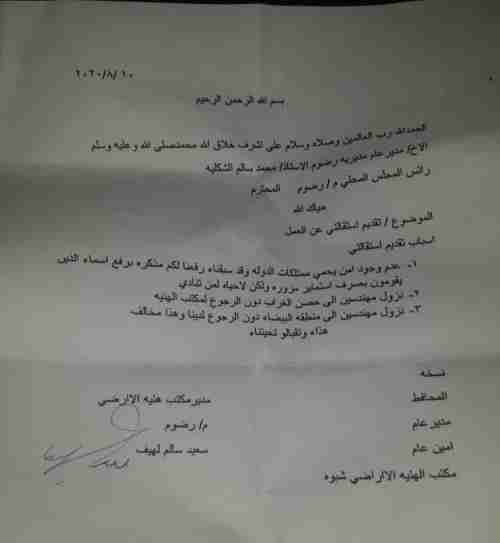 ٢٠٢٠/٨/١٠
بسم الله الرحمن الرحيم
الحمدلله رب العالمين وصلاه وسلام على اشرف خلاق الله محمدصلى الله وعليه وسلم
الاخ/ مدير عام مديريه رضوم الاستاذ/ محمد سالم الشكليه
رائس المجلس المحلي م / رضوم المحترم
حياك الله
الموضوع / تقديم استقالتي عن العمل
اسباب تقديم استقالتي
١- عدم وجود امن يحمي ممتلكات الدوله وقد سبقناء رفعنا لكم مذكره برفع اسماء الذين
يقومون بصرف استمابر مزوره ولكن لاحياه لمن تنادي
٢- نزول مهندسين الى حصن الغراب دون الرجوع لمكتب الهئيه
٣- نزول مهندسين الى منطقه البيضاء دون الرجوع لدينا وهذا مخالف
هذاه وتقبالو تحيتناء
نسخه
المحافظ
مدير عام
امين عام
مكتب الهئيه الااراضي شبوه
مديرمكتب هئيه الاارضي
م/ رضوم
سعيد سالم لهيف